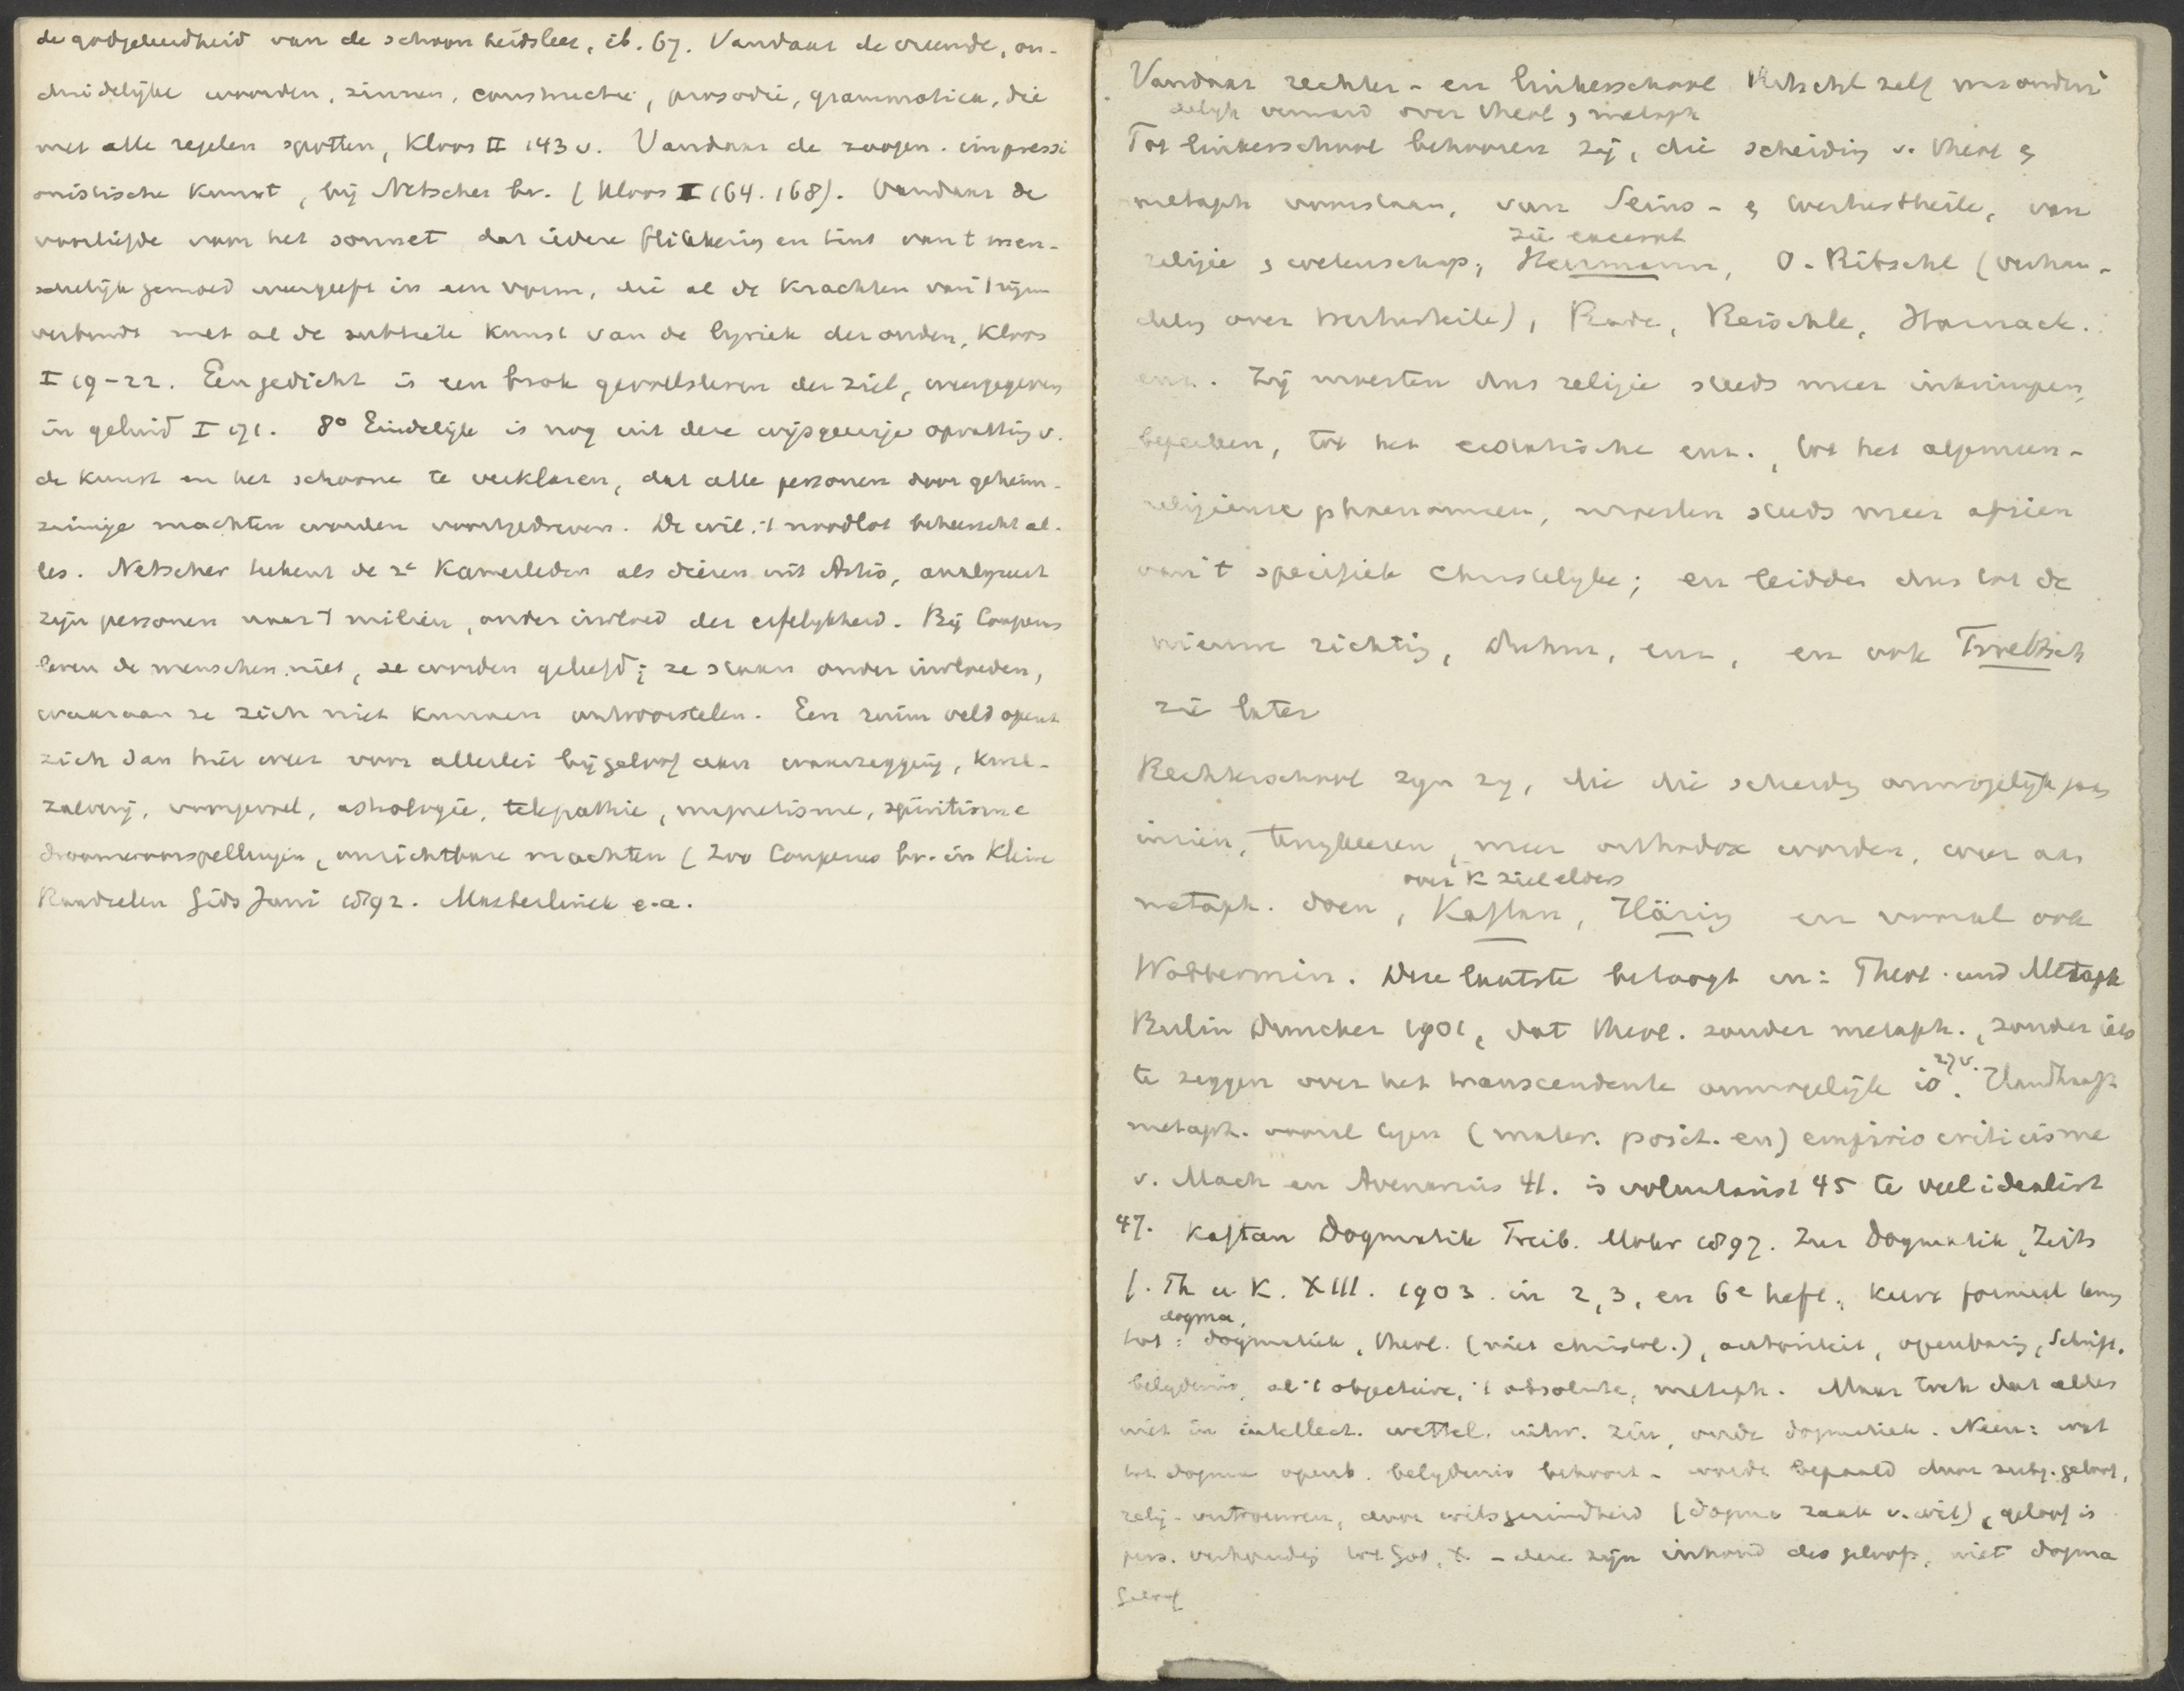 de godgeleerdheid van de schoonheidsleer, ib. 67. Vandaar de vreemde, on-
duidelijke woorden, zinnen, constructie, prosodie, grammatica, die
met alle regelen spotten, Kloos II 143 v. Vandaar de zoogen. impressi
onistische kunst, bij Netscher bv. (Kloos II 164. 168). Vandaar de
voorliefde voor het sonnet dat iedere flikkering en tint van 't men-
schelijk gemoed weergeeft in een vorm, die al de krachten van 't rijm
verbindt met al de subtiele kunst van de lyriek der ouden, Kloos
I 19-22. Een gedicht is een brok gevoelsleven der ziel, weergegeven
in geluid I 171. 8° Eindelijk is nog uit deze wijsgeerige opvatting v.
de kunst en het schoone te verklaren, dat alle personen door geheim-
zinnige machten worden voortgedreven. De wil, 't noodlot beheerscht al-
les. Netscher tekent de 2e Kamerleden als dieren uit Artis, analyseert
zijn personen naar 't milieu, onder invloed der erfelykheid. Bij Couperus
leven de menschen niet, ze worden geleefd; ze staan onder invloeden,
waaraan ze zich niet kunnen ontworstelen. Een ruim veld opent
zich dan hier weer voor allerlei bijgeloof aan waarzegging, kwak-
zalverij, astrologie, telepathie, magnetisme, spiritisme
droomvoorspellingen, onzichtbare machten (Zoo Couperus bv. in Kleine
Raadselen Gids Juni 1892. Maeterlinck e.a.
Vandaar rechter- en linkerschool Ritschl zelf
over theol, metaph
Tot linkerschool behooren zij, die scheiding v. theol &
metaph voorstaan, van Seins- & Werthurtheile, van
zie excerpt
religie & wetenschap; Herrmann, O. Ritschl (verhan-
deling over Werthurtheile), Rade, Reischle, Harnack.
enz. Zij moesten dus religie steeds meer inkrimpen,
beperken, tot het ecstatische enz., tot het algemeen-
religieuse phaenomeen, moesten steeds meer afzien
van 't specifiek christelyke; en leidden dus tot de
nieuwe richting, Duhm, enz, en ook Troeltsch
zie later
Rechterschool zyn zy, die die scheiding onmogelijk
inzien, terugkeeren, meer orthodox worden, weer aan
over K ziel elders
metaph. doen, Kaftan, Häring en vooral ook
Wobbermin. Deze laatste betoogt in: Theol. und Metaph
Berlin Duncker 1901, dat theol. zonder metaph., zonder iets
te zeggen over het transcendente onmogelijk is 27 v. Handhaaft
metaph. vooral tegen (mater. posit. en) empirio criticisme
v. Mach en Avenarius 41. is voluntarist 45 te veel idealist
47. Kaftan Dogmatik Freib. Mohr 1897. Zur Dogmatik, Zeits
f. Th u K. XIII. 1903. in 2, 3, en 6e heft, keert formeel terug
dogma,
tot: dogmatiek, theol. (niet christol.), autoriteit, openbaring, Schrift,
belydenis, al 't objectieve, 't absolute, metaph. Maar trek dat alles
niet in intellect. wettel. zin, oude dogmatiek. Neen: wat
tot dogma openb. belydenis behoort - wordt bepaald door subj. geloof,
relig- vertrouwen, door wilsgezindheid (dogma zaak v. wil), geloof is
pers. verhouding tot God, X. - deze zijn inhoud des geloofs, niet dogma
Geloof